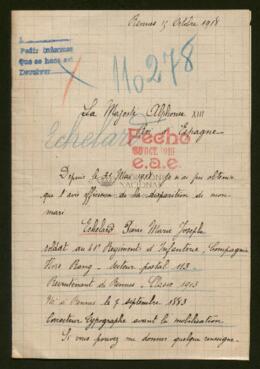 Rennes 15 Octobre 1918
Pedir informes
Que se hace así
Devolver
110278
Sa Majesté Alphonse XIII
Roi d'Espagne
Echelard
Fecho
30 OCT. 1918
e.a.e.
Depuis le 21 1918 je n'ai pu obtenir
que l'avis officieux de la disparition de mon
mari
Echelard Pierre Marie Joseph
soldat au Régiment d'Infanterie, Compagnie
Hors Rang - Secteur postal 113
Recrutement de Rennes - Classe 1913
Né à Rennes le 7 septembre 1893
Correcteur typographe avant la mobilisation
Si vous pouvez me donner quelque renseigne-